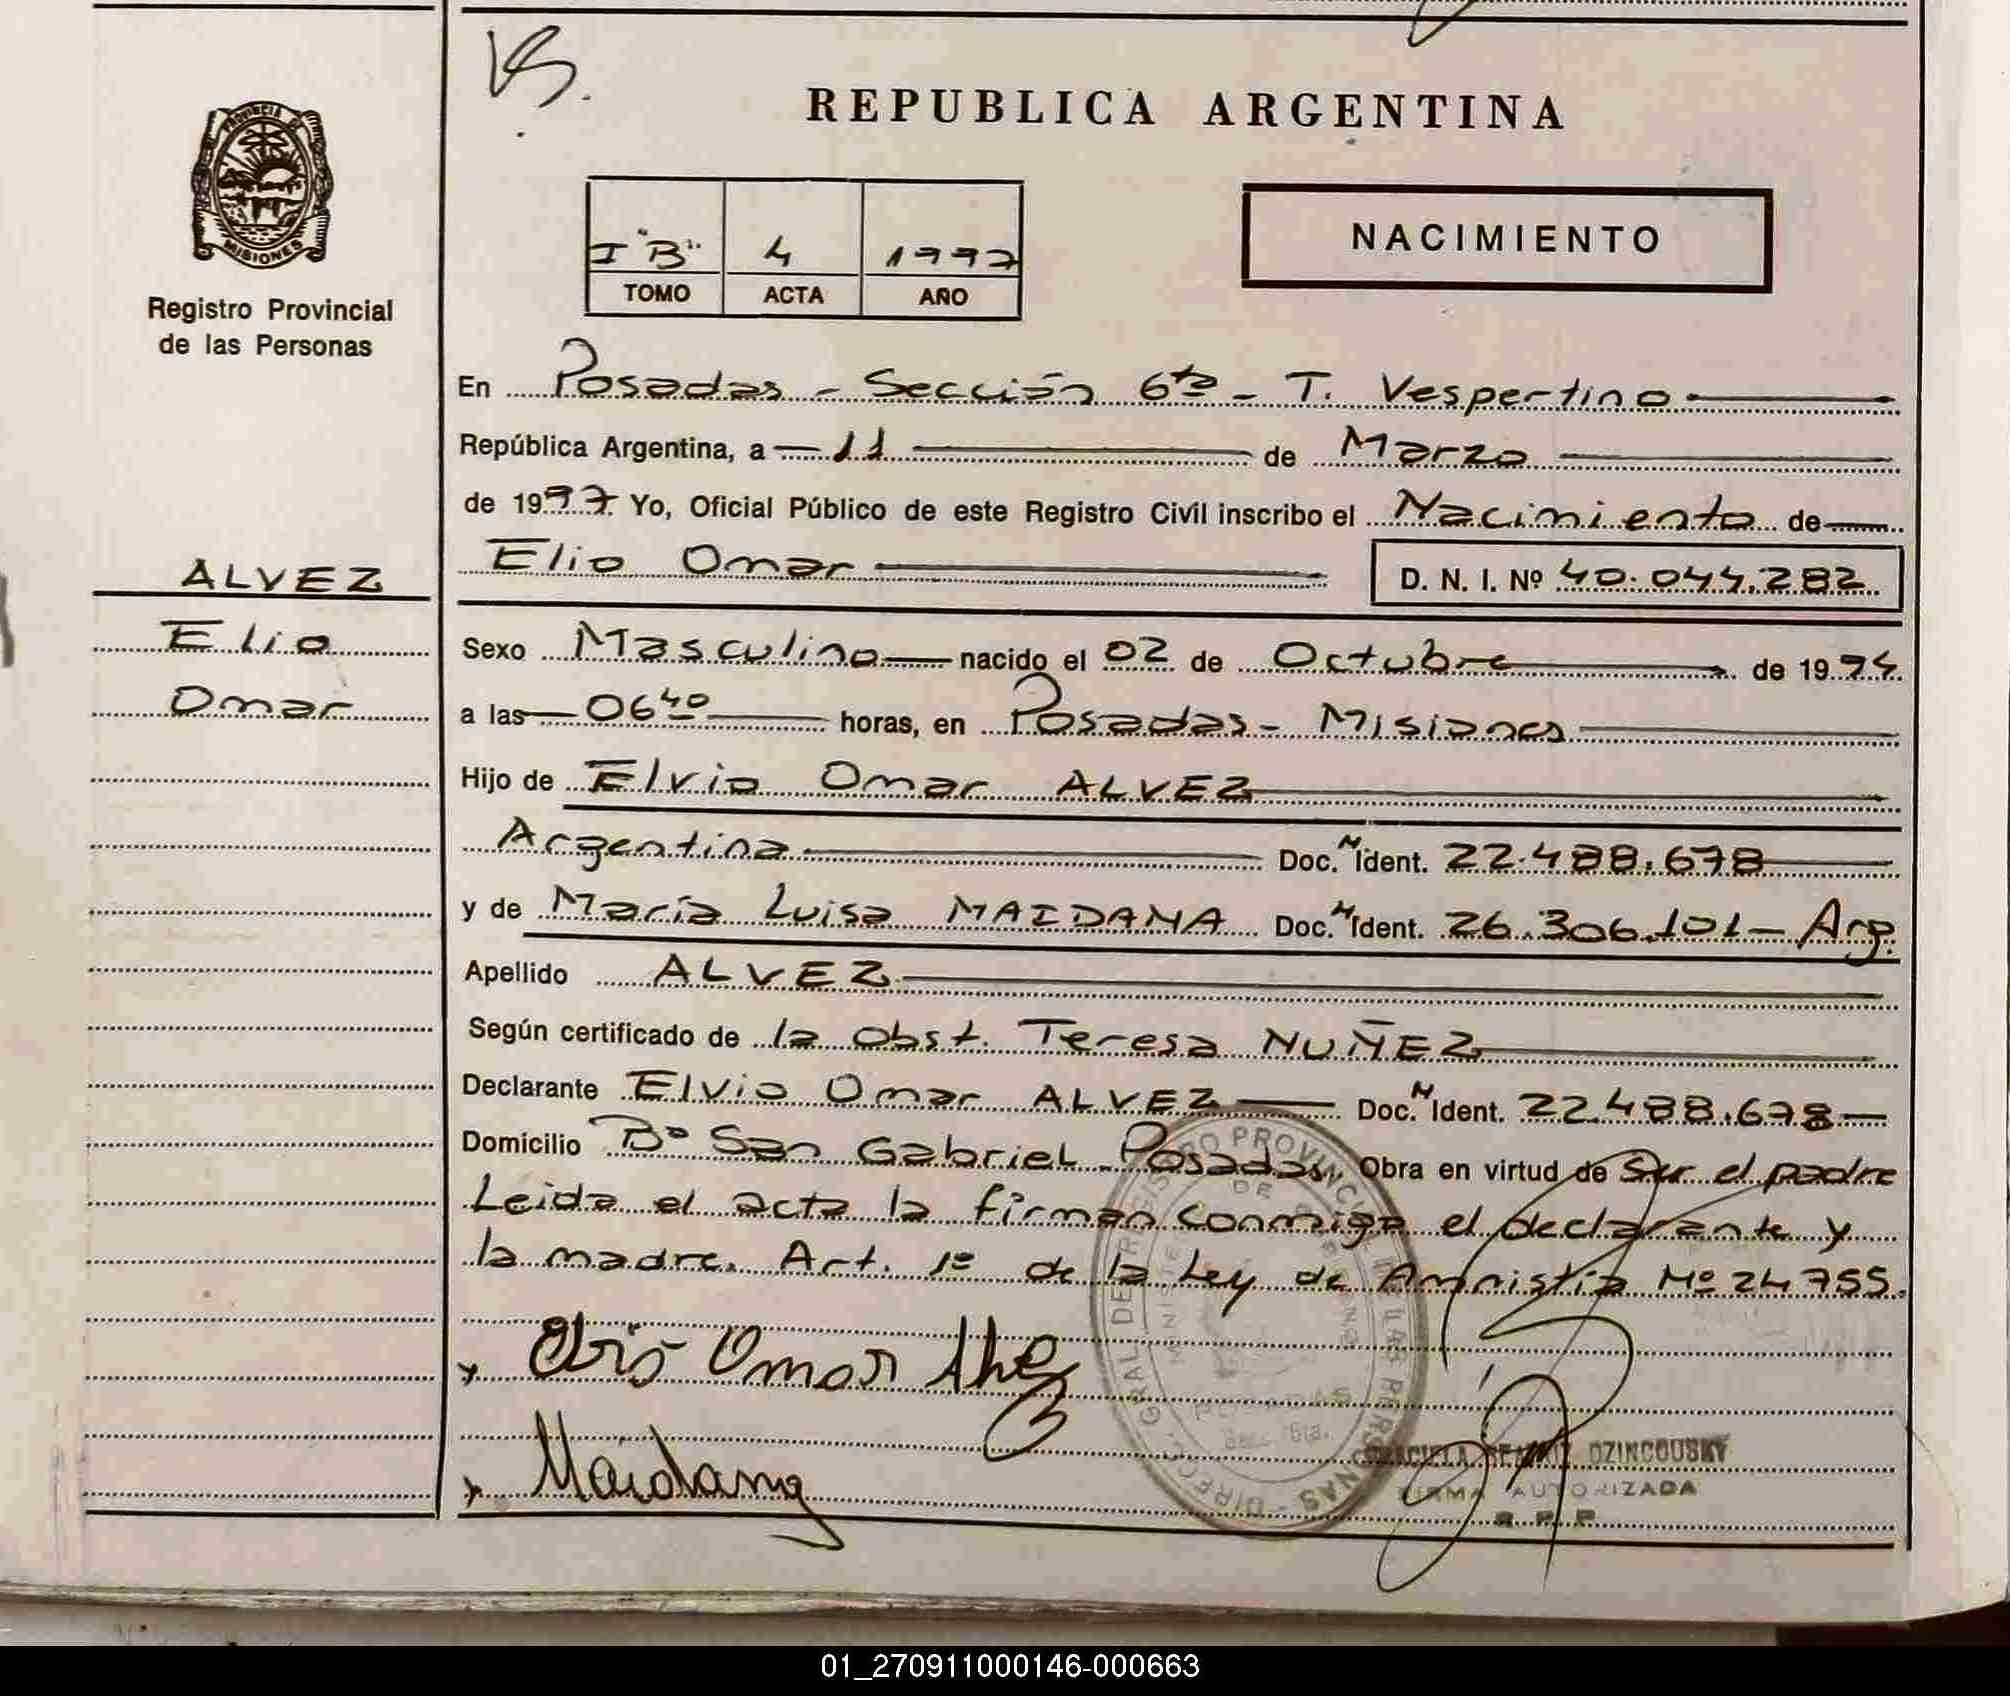 REPUBLICA ARGENTINA
PROVINCIA DE
MISIONES
Registro Provincial
de las Personas
I "B" 4 1997
TOMO ACTA AÑO
NACIMIENTO
En Posadas - Sección 6ta - T. Vespertino
República Argentina, a 11 de Marzo
de 1997 Yo, Oficial Público de este Registro Civil inscribo el Nacimiento de
ALVEZ
Elio
Omar
Elio Omar D. N. I. Nº 40.044.282
Sexo Masculino nacido el 02 de Octubre de 1994
a las 06 40 horas, en Posadas - Misiones
Hijo de Elvio Omar ALVEZ
Argentina Doc. N Ident. 22.488.678
y de María Luisa MAIDANA Doc. N Ident. 26.306.101 - Arg.
Apellido ALVEZ
Según certificado de la Obst. Teresa NUÑEZ
Declarante Elvio Omar ALVEZ Doc. N Ident. 22.488.678
Domicilio Bº San Gabriel - Posadas. Obra en virtud de Ser el padre
Leida el acta la firman conmigo el declarante y
la madre. Art. 1º de la Ley de Amnistía Nº 24755.
Maidana
DIRECC. GRAL. DE REGISTRO PROVINCIAL DE LAS PERSONAS
OZINCOUSKY
FIRMA AUTORIZADA
R. P. P.
01_270911000146-000663